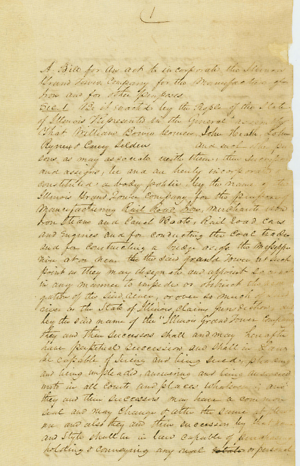 1
A Bill for an act to incorporate the Illinois
Grand Tower Company for the Manufacture of
Iron and for other purposes
Sec 1 Be it enacted by the People of the State
of Illinois Represented in the General Assembly
That William Brown John
and Curry Selden and such other per
sons, as may associate with them their successors
and assigns, be and are hereby incorporated
constituted a body politic by the name of the
Illinois Grand Tower Company for the purpose of
Manufacturing Rail Road Iron Merchants Iron
Iron Steam and Canal Boats, Rail Road Cars
and Engines and for conducting the Coal trade
and for constructing a bridge across the Mississippi
at or near the said Grand Tower at such
point as they may designate and appoint so as not
in any manner to impede or obstruct the navi
gation of the said river, or over so much of said
river as the State of Illinois claims jurisdiction and
by the said name of the Illinois Grand Tower Company
they and their Successors shall and may hereafter
have perpetual Succession and shall in law
be capable of suing and being sued, pleading
and being impleaded, answering and being answered
unto in all courts and places whatsoever and
they and their successors may have a common
seal and may change & alter the same at
and also they and their successors by the same
and Style shall be in law capable of purchasing
holding & conveying any real or personal